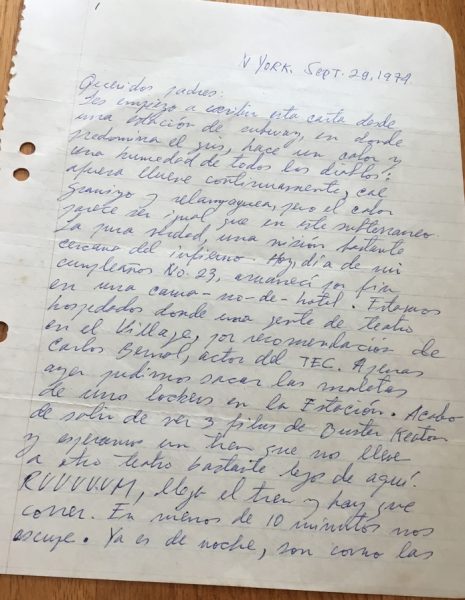 1
N YORK. Sept. 29, 1974.
Queridos padres:
Les empiezo a escribir esta carta desde
una estación de subway, en donde
predomina el gris, hace un calor y
una humedad de todos los diablos.
afuera llueve continuamente, cae
granizo y relampaguea, pero el calor
parece ser igual que en este subterráneo.
La pura verdad, una visión bastante
cercana del infierno. Hoy, día de mi
cumpleaños No. 23, amanecí por fin
en una cama-no-de-hotel. Estamos
hospedados donde una gente de teatro
en el Village, por recomendación de
Carlos Bernal, actor del TEC. Apenas
ayer pudimos sacar las maletas
de unos lockers en la Estación. Acabo
de salir de ver 3 films de Buster Keaton
y esperamos un tren que nos lleve
a otro teatro bastante lejos de aquí.
RUUUUUM, llega el tren y hay que
correr. En menos de 10 minutos nos
escupe. Ya es de noche, son como las